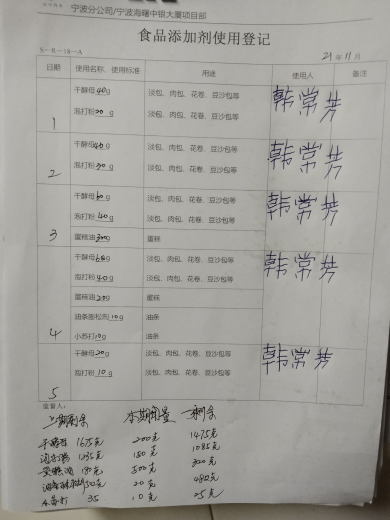 宁波分公司/宁波海曙中银大厦项目部
食品添加剂使用登记
S-R-18-A
21年11月
日期 使用名称、使用标准 用途 使用人 备注
干酵母40g 淡包、肉包、花卷、豆沙包等 韩常芳
泡打粉20g 淡包、肉包、花卷、豆沙包等
1
干酵母40g 淡包、肉包、花卷、豆沙包等 韩常芳
泡打粉30g 淡包、肉包、花卷、豆沙包等
2
干酵母60g 淡包、肉包、花卷、豆沙包等 韩常芳
泡打粉40g 淡包、肉包、花卷、豆沙包等
3 蛋糕油300g 蛋糕
干酵母60g 淡包、肉包、花卷、豆沙包等 韩常芳
泡打粉40g 淡包、肉包、花卷、豆沙包等
蛋糕油20g 蛋糕
油条膨松剂10g 油条
4 小苏打10g 油条
干酵母20g 淡包、肉包、花卷、豆沙包等 韩常芳
泡打粉10g 淡包、肉包、花卷、豆沙包等
5
监督人:
上期剩余 本期用量 剩余
干酵母 1675克 200克 1475克
泡打粉 1235克 150克 1085克
蛋糕油 500克 320克
20克 480克
小苏打 35 10克 25克